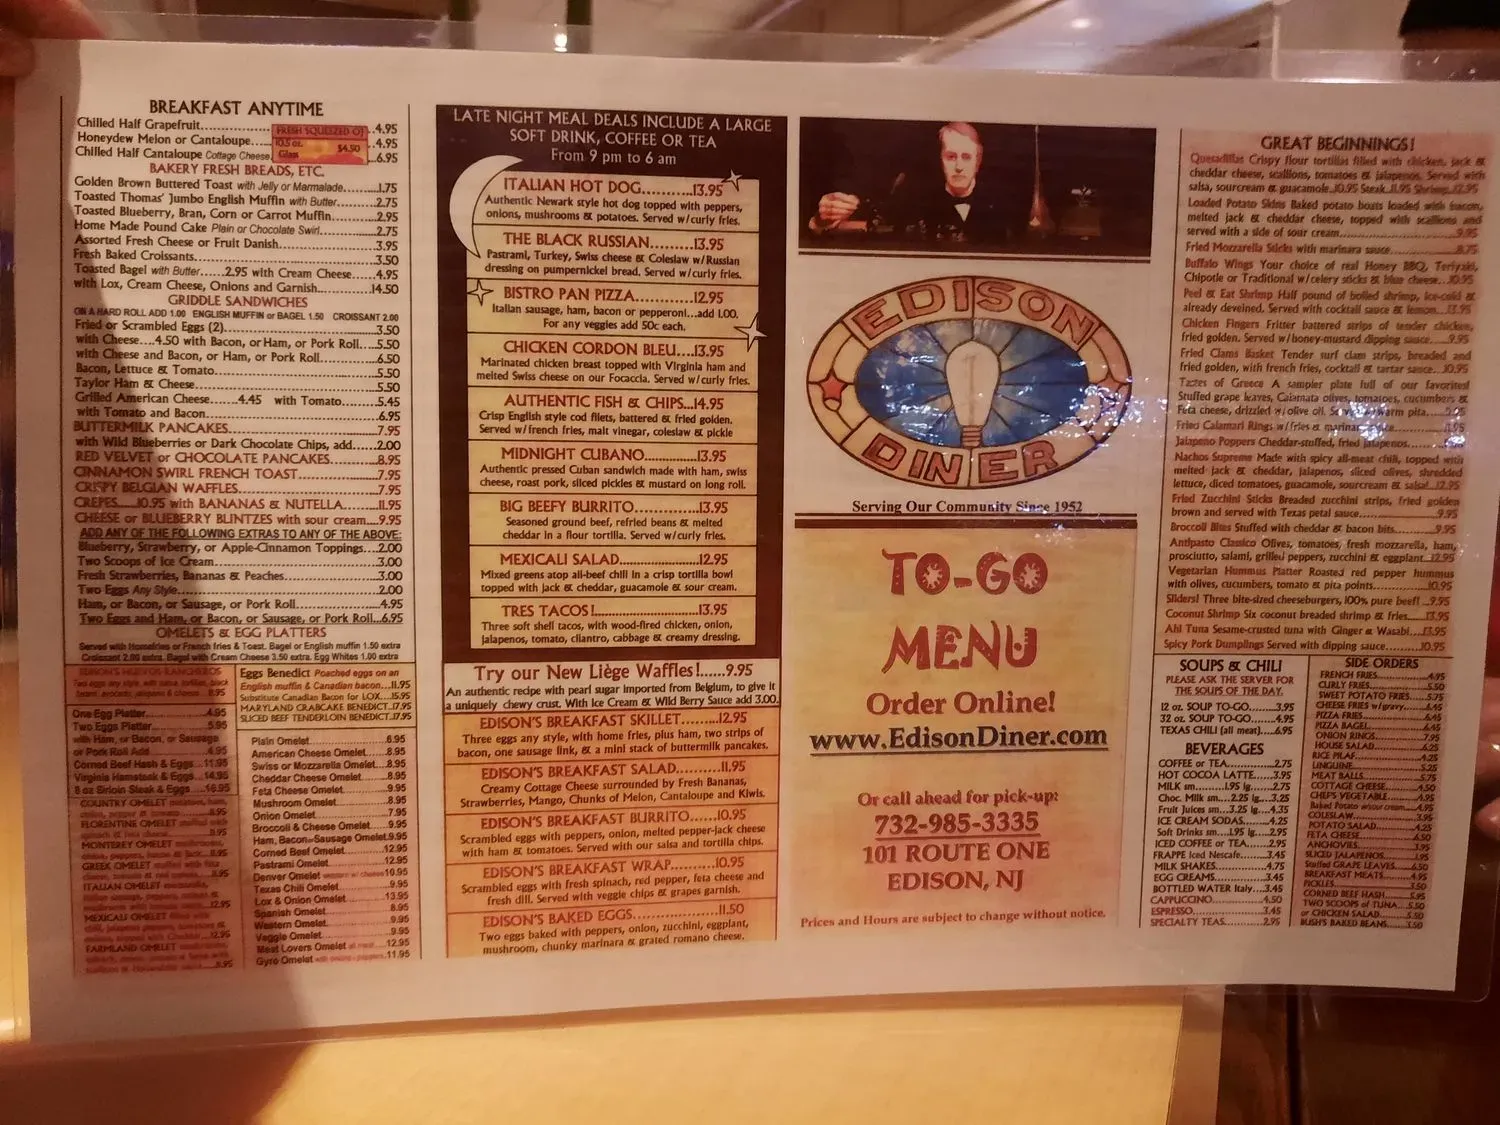 BREAKFAST ANYTIME
Chilled Half Grapefruit..............4.95
Honeydew Melon or Cantaloupe.....4.95
Chilled Half Cantaloupe Cottage Cheese 6.95
FRESH SQUEEZED OJ
10.5 oz. Glass $4.50
BAKERY FRESH BREADS, ETC.
Golden Brown Buttered Toast with Jelly or Marmalade.......1.75
Toasted Thomas' Jumbo English Muffin with Butter.......2.75
Toasted Blueberry, Bran, Corn or Carrot Muffin.......2.95
Home Made Pound Cake Plain or Chocolate Swirl.......2.75
Assorted Fresh Cheese or Fruit Danish.......3.95
Fresh Baked Croissants.......3.50
Toasted Bagel with Butter.....2.95 with Cream Cheese....4.95
with Lox, Cream Cheese, Onions and Garnish.......14.50
GRIDDLE SANDWICHES
ON A HARD ROLL ADD 1.00 ENGLISH MUFFIN or BAGEL 1.50 CROISSANT 2.00
Fried or Scrambled Eggs (2).......3.50
with Cheese....4.50 with Bacon, or Ham, or Pork Roll.....5.50
with Cheese and Bacon, or Ham, or Pork Roll.......6.50
Bacon, Lettuce & Tomato.......5.50
Taylor Ham & Cheese.......5.50
Grilled American Cheese......4.45 with Tomato.......5.45
with Tomato and Bacon.......6.95
BUTTERMILK PANCAKES.......7.95
with Wild Blueberries or Dark Chocolate Chips, add.....2.00
RED VELVET or CHOCOLATE PANCAKES.......8.95
CINNAMON SWIRL FRENCH TOAST.......7.95
CRISPY BELGIAN WAFFLES.......7.95
CREPES.....10.95 with BANANAS & NUTELLA.......11.95
CHEESE or BLUEBERRY BLINTZES with sour cream....9.95
ADD ANY OF THE FOLLOWING EXTRAS TO ANY OF THE ABOVE:
Blueberry, Strawberry, or Apple-Cinnamon Toppings....2.00
Two Scoops of Ice Cream.......3.00
Fresh Strawberries, Bananas & Peaches.......3.00
Two Eggs Any Style.......2.00
Ham, or Bacon, or Sausage, or Pork Roll.......4.95
Two Eggs and Ham, or Bacon, or Sausage, or Pork Roll...6.95
OMELETS & EGG PLATTERS
Served with Homefries or French fries & Toast. Bagel or English muffin 1.50 extra
Croissant 2.00 extra. Bagel with Cream Cheese 3.50 extra. Egg Whites 1.00 extra
EDISON'S HUEVOS RANCHEROS
One Egg Platter.......4.95
Two Eggs Platter.......5.95
with Ham, or Bacon, or Sausage
or Pork Roll Add.......4.95
Corned Beef Hash & Eggs...11.95
Virginia Hamsteak & Eggs...14.95
8 oz Sirloin Steak & Eggs....16.95
COUNTRY OMELET
FLORENTINE OMELET
MONTEREY OMELET
GREEK OMELET
ITALIAN OMELET
MEXICALI OMELET
FARMLAND OMELET
Eggs Benedict Poached eggs on
English muffin & Canadian bacon...11.95
Substitute Canadian Bacon for LOX....15.95
MARYLAND CRABCAKE BENEDICT..17.95
SLICED BEEF TENDERLOIN BENEDICT..17.95
Plain Omelet.......6.95
American Cheese Omelet.....8.95
Swiss or Mozzarella Omelet...8.95
Cheddar Cheese Omelet.......8.95
Feta Cheese Omelet.......9.95
Mushroom Omelet.......8.95
Onion Omelet.......7.95
Broccoli & Cheese Omelet.....9.95
Ham, Bacon-Sausage Omelet.9.95
Corned Beef Omelet.......12.95
Pastrami Omelet.......12.95
Denver Omelet 10.95
Texas Chili Omelet.......9.95
Lox & Onion Omelet.......13.95
Spanish Omelet.......8.95
Western Omelet.......9.95
Veggie Omelet.......9.95
Meat Lovers Omelet 12.95
Gyro Omelet 11.95
LATE NIGHT MEAL DEALS INCLUDE A LARGE
SOFT DRINK, COFFEE OR TEA
From 9 pm to 6 am
ITALIAN HOT DOG..........13.95
Authentic Newark style hot dog topped with peppers,
onions, mushrooms & potatoes. Served w/curly fries.
THE BLACK RUSSIAN........13.95
Pastrami, Turkey, Swiss cheese & Coleslaw w/Russian
dressing on pumpernickel bread. Served w/curly fries.
BISTRO PAN PIZZA...........12.95
Italian sausage, ham, bacon or pepperoni...add 1.00.
For any veggies add 50c each.
CHICKEN CORDON BLEU....13.95
Marinated chicken breast topped with Virginia ham and
melted Swiss cheese on our Focaccia. Served w/curly fries.
AUTHENTIC FISH & CHIPS...14.95
Crisp English style cod filets, battered & fried golden.
Served w/french fries, malt vinegar, coleslaw & pickle
MIDNIGHT CUBANO...........13.95
Authentic pressed Cuban sandwich made with ham, swiss
cheese, roast pork, sliced pickles & mustard on long roll.
BIG BEEFY BURRITO............13.95
Seasoned ground beef, refried beans & melted
cheddar in a flour tortilla. Served w/curly fries.
MEXICALI SALAD...............12.95
Mixed greens atop all-beef chili in a crisp tortilla bowl
topped with jack & cheddar, guacamole & sour cream.
TRES TACOS!...............13.95
Three soft shell tacos, with wood-fired chicken, onion,
jalapenos, tomato, cilantro, cabbage & creamy dressing.
Try our New Liège Waffles!.....9.95
An authentic recipe with pearl sugar imported from Belgium, to give it
a uniquely chewy crust. With Ice Cream & Wild Berry Sauce add 3.00.
EDISON'S BREAKFAST SKILLET......12.95
Three eggs any style, with home fries, plus ham, two strips of
bacon, one sausage link, & a mini stack of buttermilk pancakes.
EDISON'S BREAKFAST SALAD..........11.95
Creamy Cottage Cheese surrounded by Fresh Bananas,
Strawberries, Mango, Chunks of Melon, Cantaloupe and Kiwis.
EDISON'S BREAKFAST BURRITO.......10.95
Scrambled eggs with peppers, onion, melted pepper-jack cheese
with ham & tomatoes. Served with our salsa and tortilla chips.
EDISON'S BREAKFAST WRAP..........10.95
Scrambled eggs with fresh spinach, red pepper, feta cheese and
fresh dill. Served with veggie chips & grapes garnish.
EDISON'S BAKED EGGS...............11.50
Two eggs baked with peppers, onion, zucchini, eggplant,
mushroom, chunky marinara & grated romano cheese.
EDISON
DINER
Serving Our Community Since 1952
TO-GO
MENU
Order Online!
www.EdisonDiner.com
Or call ahead for pick-up:
732-985-3335
101 ROUTE ONE
EDISON, NJ
Prices and Hours are subject to change without notice.
GREAT BEGINNINGS!
Quesadillas Crispy flour tortillas filled with chicken, jack &
cheddar cheese, scallions, tomatoes & jalapenos. Served with
salsa, sourcream & guacamole.10.95 Steak..11.95 Shrimp..12.95
Loaded Potato Skins Baked potato boats loaded with bacon,
melted jack & cheddar cheese, topped with scallions and
served with a side of sour cream.......9.95
Fried Mozzarella Sticks with marinara sauce.......8.75
Buffalo Wings Your choice of real Honey BBQ, Teriyaki,
Chipotle or Traditional w/celery sticks & blue cheese...10.95
Peel & Eat Shrimp Half pound of boiled shrimp, ice-cold &
already deveined. Served with cocktail sauce & lemon...13.95
Chicken Fingers Fritter battered strips of tender chicken,
fried golden. Served w/honey-mustard dipping sauce.....9.95
Fried Clams Basket Tender surf clam strips, breaded and
fried golden, with french fries, cocktail & tartar sauce...10.95
Tastes of Greece A sampler plate full of our favorites!
Stuffed grape leaves, Calamata olives, tomatoes, cucumbers &
Feta cheese, drizzled w/olive oil. Served w/warm pita.....9.95
Fried Calamari Rings w/fries & marinara sauce
Jalapeno Poppers Cheddar-stuffed, fried jalapenos.
Nachos Supreme Made with spicy all-meat chili, topped with
melted jack & cheddar, jalapenos, sliced olives, shredded
lettuce, diced tomatoes, guacamole, sourcream & salsa!..12.95
Fried Zucchini Sticks Breaded zucchini strips, fried golden
brown and served with Texas petal sauce.......9.95
Broccoli Bites Stuffed with cheddar & bacon bits.......9.95
Antipasto Classico Olives, tomatoes, fresh mozzarella, ham,
prosciutto, salami, grilled peppers, zucchini & eggplant..12.95
Vegetarian Hummus Platter Roasted red pepper hummus
with olives, cucumbers, tomato & pita points.......10.95
Sliders! Three bite-sized cheeseburgers, 100% pure beef! ..9.95
Coconut Shrimp Six coconut breaded shrimp & fries....13.95
Ahi Tuna Sesame-crusted tuna with Ginger & Wasabi....13.95
Spicy Pork Dumplings Served with dipping sauce.......10.95
SOUPS & CHILI
PLEASE ASK THE SERVER FOR
THE SOUPS OF THE DAY.
12 oz. SOUP TO-GO.......3.95
32 oz. SOUP TO-GO.......4.95
TEXAS CHILI (all meat).....6.95
BEVERAGES
COFFEE or TEA.......2.75
HOT COCOA LATTE.....3.95
MILK sm.......1.95 lg.....2.75
Choc. Milk sm...2.25 lg...3.25
Fruit Juices sm...3.25 lg...4.35
ICE CREAM SODAS.......4.25
Soft Drinks sm....1.95 lg...2.95
ICED COFFEE or TEA.....2.95
FRAPPE Iced Nescafe.....3.45
MILK SHAKES.......4.75
EGG CREAMS.......3.45
BOTTLED WATER Italy...3.45
CAPPUCCINO.......4.50
ESPRESSO.......3.45
SPECIALTY TEAS.......2.95
SIDE ORDERS
FRENCH FRIES.......4.95
CURLY FRIES.......5.50
SWEET POTATO FRIES...5.75
CHEESE FRIES w/gravy...6.45
PIZZA FRIES.......6.45
PIZZA BAGEL.......6.45
ONION RINGS.......7.95
HOUSE SALAD.......6.25
RICE PILAF.......4.25
LINGUINE.......5.25
MEAT BALLS.......5.75
COTTAGE CHEESE.......4.50
CHEF'S VEGETABLE.......4.95
Baked Potato w/sour cream...4.95
COLESLAW.......3.95
POTATO SALAD.......4.25
FETA CHEESE.......6.50
ANCHOVIES.......3.95
SLICED JALAPENOS.....1.95
Stuffed GRAPE LEAVES....6.50
BREAKFAST MEATS.......4.95
PICKLES.......3.50
CORNED BEEF HASH.....5.95
TWO SCOOPS of TUNA...5.50
or CHICKEN SALAD.......5.50
BUSH'S BAKED BEANS....3.50